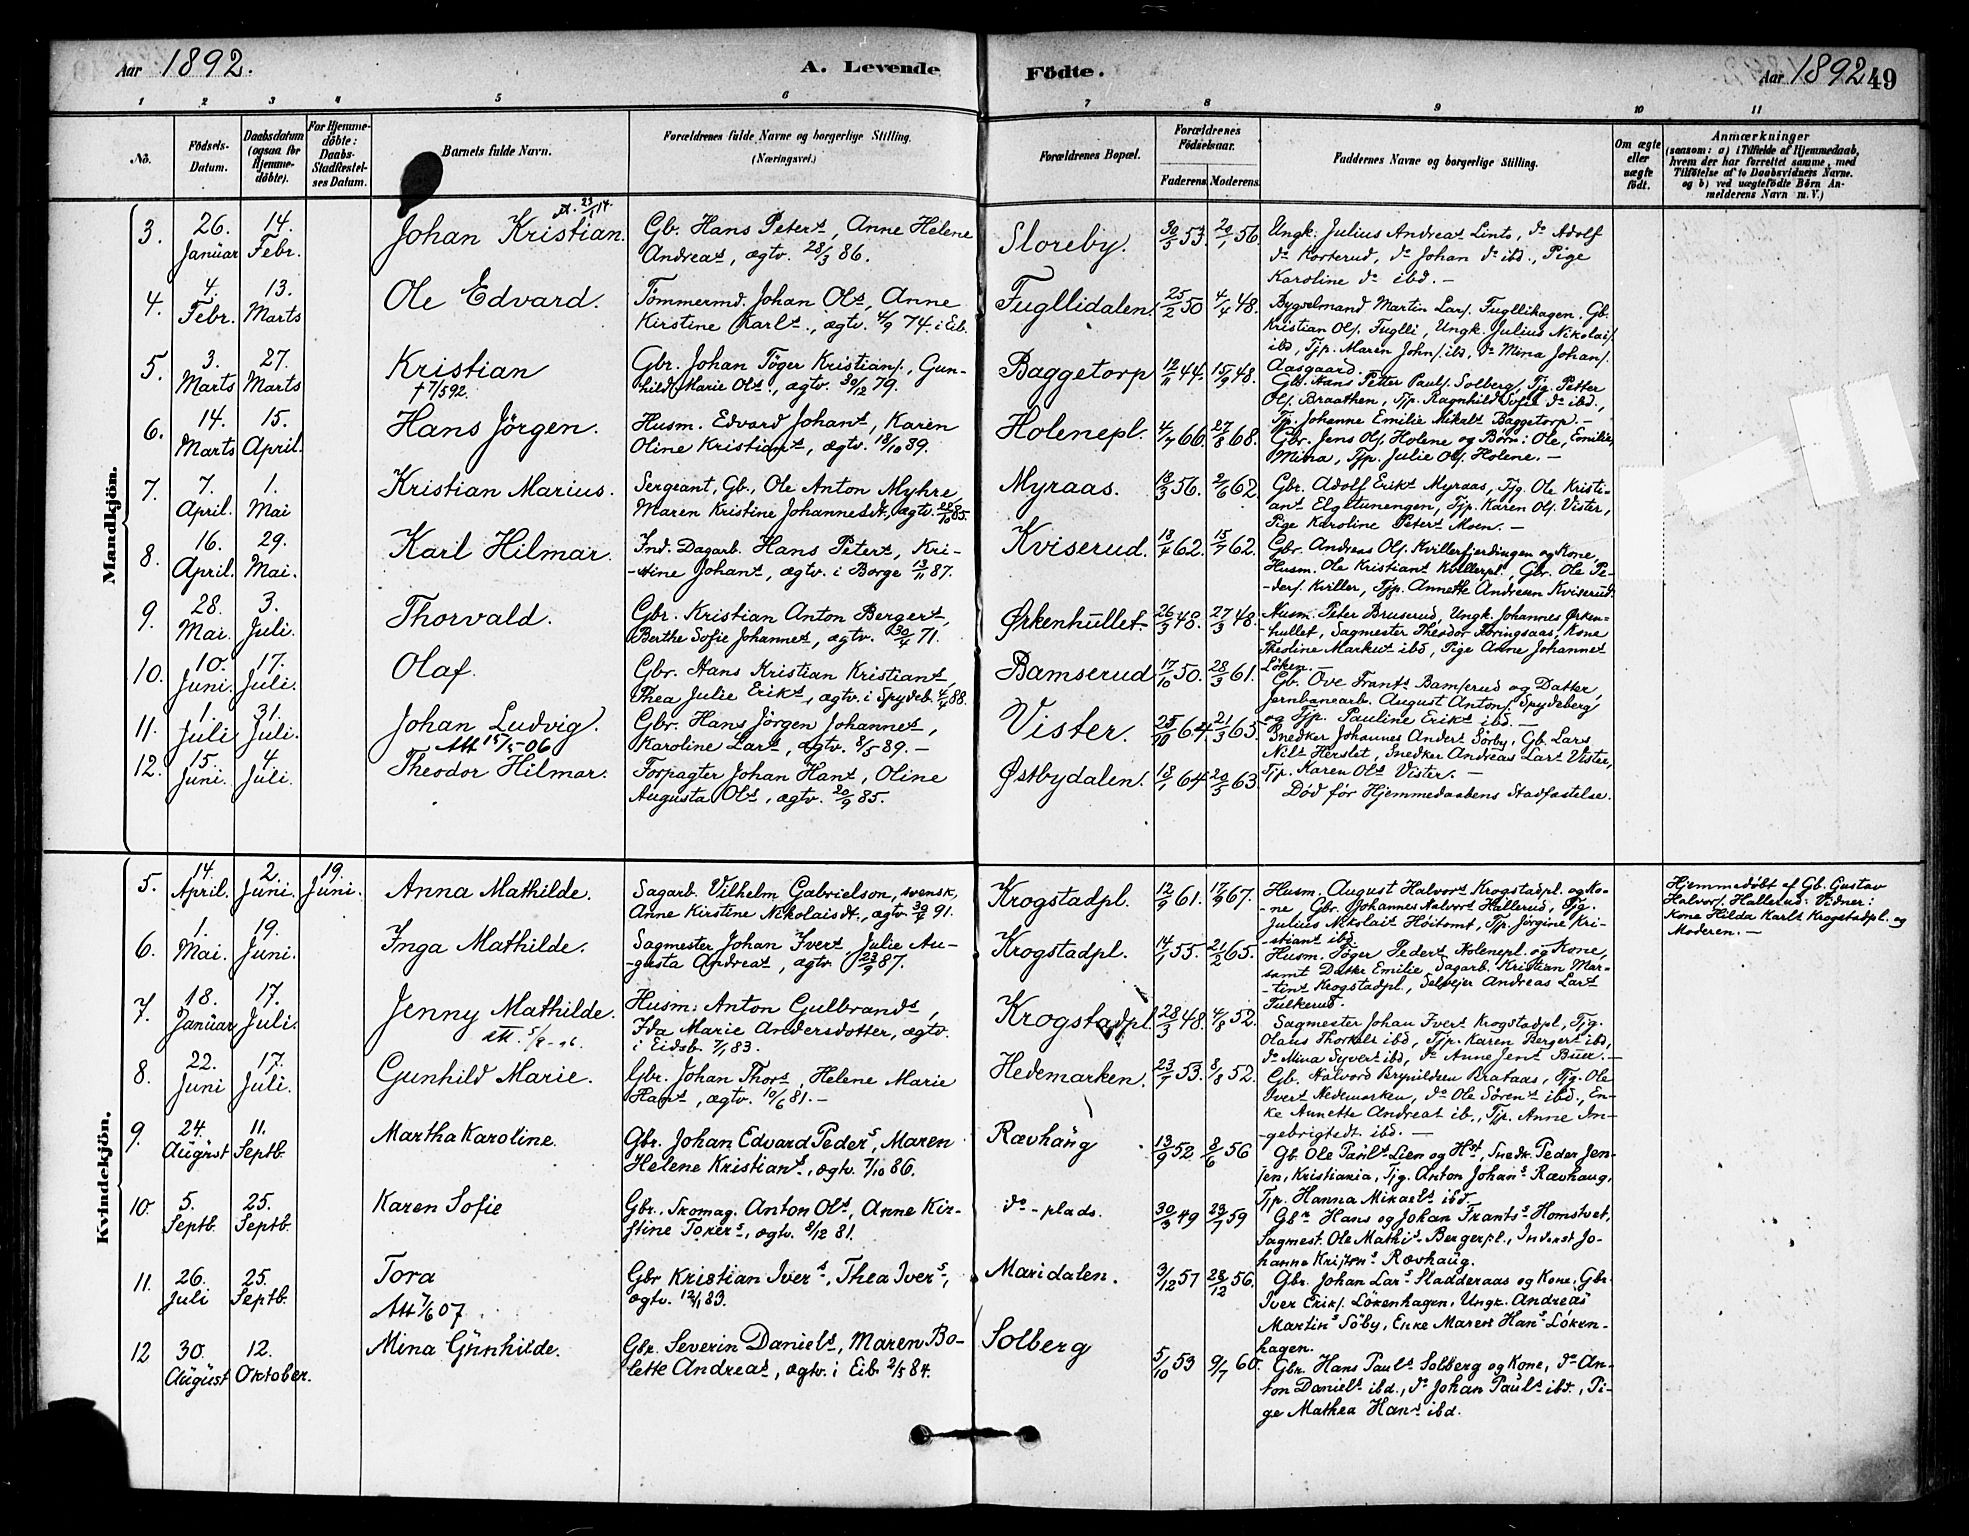 Aar 1892.
A. Levende
Födte.
Aar 1892
49
1 2 3 4 5 6 7 8 9 10 11
No.
Födsels-Datum.
Daabsdatum (ogsaa for Hjemme-döbte).
For Hjemme-döbte: Daabs-Stadfæstel-ses Datum.
Barnets fulde Navn.
Forældrenes fulde Navne og borgerlige Stilling. (Næringsvei.)
Forældrenes Bopæl.
Forældrenes Födselsaar.
Faderens. Moderens.
Faddernes Navne og borgerlige Stilling.
Om ægte eller uægte födt.
Anmærkninger
(saasom: a) i Tilfælde af Hjemmedaab,
hvem der har forrettet samme, med
Tilföielse af to Daabsvidners Navne.
og b) ved uægtefödte Börn An-
melderens Navn m. V.)
Mandkjön.
3. 26. Januar 14. Febr. Johan Kristian. 23/1 14.
Gb. Hans Peters, Anne Helene
Andreas, ægtv. 28/3 86.
Storeby. 30/5 53. 20/1 56.
Ungk. Julius Andreas Linto, do Adolf
do Korterud, do Johan do ibd., Pige
Karoline do ibd. —
4. 4. Febr. 13. Marts Ole Edvard.
Tömmermd. Johan Ols, Anne
Kirstine Karls., ægtv. 4/9 74. i Eib.
Fugllidalen. 25/2 50 4/4 48.
Bygselmand Martin Lars. Fugllihagen. Gb.
Kristian Ols. Fuglli, Ungk. Julius Nikolais.
ibd, Tjp. Maren Johns. ibd, do Mina Johans.
Aasgaard.
5. 3. Marts 27. Marts Kristian
† 7/5 92.
Gbr. Johan Töger Kristians., Gun-
hild Marie Ols., ægtv. 30/12 79.
Baggetorp 12/11 44. 15/9 48.
Gbr. Hans Petter Pauls. Solberg, Tjg. Petter
Ols. Braathen, Tjp. Ragnhild Sofie do ibd.,
Tjp. Johanne Emilie Mikals Baggetorp. —
6. 14. Marts 15. April. Hans Jörgen.
Husm. Edvard Johans, Karen
Oline Kristians, ægtv. 18/10 89.
Holenepl. 4/7 66. 27/8 68.
Gbr. Jens Ols. Holene og Børn: Ole, Emilie,
Mina, Tjp. Julie Ols. Holene. —
7. 7. April. 1. Mai Kristian Marius.
Sergeant, Gb., Ole Anton Myhre,
Maren Kristine Johannesdt., ægtv. 28/10 85.
Myraas. 12/3 56. 2/6 62.
Gbr. Adolf Eriks Myraas, Tjg. Ole Kristi-
ans Elgetunengen, Tjp. Karen Ols. Vister,
Pige Karoline Peters Moen. —
8. 16. April. 29. Mai. Karl Hilmar.
Ind. Dagarb. Hans Peters, Kri-
-stine Johans, ægtv. i Borge 13/11 87.
Kviserud. 18/4 62. 15/7 62.
Gbr. Andreas Ols. Kvillerfjerdingen og Kone,
Husm. Ole Kristians Kvillerpl., Gbr. Ole Pe-
-ders. Kviller, Tjp. Annette Andresen Kviserud.
9. 28. Mai. 3. Juli. Thorvald.
Gbr. Kristian Anton Bergers,
Berthe Sofie Johannes, ægtv. 30/4 71.
Ørkenhullet. 26/3 48. 27/3 48.
Husm. Peter Bruserud, Ungk. Johannes Ørken-
-hullet, Sagmester Theodor Foringsaas, Kone
Theoline Markus ibd, Pige Anne Johannes
Löken. —
10. 10. Juni. 17. Juli. Olaf.
Gbr. Hans Kristian Kristians,
Thea Julie Eriks, ægtv. i Spydeb. 4/4 88.
Bamserud 17/10 50. 28/3 61.
Gb. Ove Frants Bamserud og Datter,
Jernbanearb. August Antons. Spydeberg
og Tjp. Pauline Eriks ibd. —
11. 1. Juli 31. Juli. Johan Ludvig.
Att 15/5-06
Gbr. Hans Jörgen Johannes,
Karoline Lars, ægtv. 8/5 89. —
Vister. 25/10 64. 21/3 65.
Snedker Johannes Anders Sörby, Gb. Lars
Nils Herslet, Snedker Andreas Lars Vister,
Tjp. Karen Ols Vister. —
12. 15. Juni. 4. Juli. Theodor Hilmar.
Forpagter Johan Hans, Oline
Augusta Ols, ægtv. 20/9 85.
Østbydalen. 18/1 64 20/5 63.
Död før Hjemmedaabens Stadfæstelse.
Kvindekjön.
5. 14. April. 2. Juni. 19. Juni. Anna Mathilde.
Sagarb. Vilhelm Gabrielson, svensk,
Anne Kirstine Nikolaisdt., ægtv. 30/8 91.
Krogstadpl. 12/9 61. 17/9 67.
Husm. August Halvors Krogstadpl. og Ko-
-ne, Gbr. Johannes Halvors Hallerud, Tjg.
Julius Nikolais Höitomt, Tjp. Jörgine Kri-
-stians ibd.
Hjemmedöbt af Gb. Gustav
Halvors. Hallerud. Vidner:
Kone Hilda Karls Krogstadpl. og
Moderen. —
6. 1. Mai. 19. Juni. Inga Mathilde.
Sagmester Johan Ivers, Julie Au-
-gusta Andreas, ægtv. 23/9 87.
Krogstadpl. 14/1 55. 21/2 65.
Husm. Töger Peders Holenepl. og Kone,
samt Datter Emilie, Sagarb. Kristian Mar-
-tins Krogstadpl, Selvejer Andreas Lars
Tulkerud.
7. 18. Januar 17. Juli. Jenny Mathilde.
Husm. Anton Gulbrands,
Ida Marie Andersdotter, ægtv.
i Eidsb. 7/1 83.
Krogstadpl. 28/3 48. 4/8 52.
Sagmester Johan Ivers Krogstadpl, Tjg.
Olaus Thorkels ibd, Tjp. Karen Bergers ibd,
do Mina Syvers ibd, do Anne Jens Buer. —
8. 22. Juni 17. Juli. Gunhild Marie.
Gbr. Johan Thors, Helene Marie
Hans, ægtv. 10/6 81. —
Hedemarken. 23/7 53. 8/8 52.
Gb. Halvord Brynildsen Brataas, Tjg. Ole
Ivers Hedemarken, do Ole Sörens ibd., En-
ke Annette Andreas ib., Tjp. Anne In-
-gebrigtsdt. ibd. —
9. 24. August 11. Septb. Martha Karoline.
Gbr. Johan Edvard Peders, Maren
Helene Kristians, ægtv. 7/10 86.
Rævhaug 13/9 52 8/6 56
Gb. Ole Pauls Lien og Hst, Snedk. Peder Jen-
sen, Kristiania, Tjg. Anton Johans Rævhaug,
Tjp. Hanna Mikaels ibd.
10. 5. Septb. 25. Septb. Karen Sofie
Gbr. Skomag. Anton Ols, Anne Kir-
stine Torers, ægtv. 8/12 81.
do -plads. 30/3 49 23/7 59
Gbr Hans og Johan Frants Homstvet,
Sagmest. Ole Mathis Bergerpl., Inderst Jo-
hanne Kristens Rævhaug.
11. 26. Juli 25. Septb. Tora
Att 7/6 07.
Gbr Kristian Ivers, Thea Ivers,
ægtv. 12/1 83.
Maridalen. 3/12 57 28/12 56.
Gbr. Johan Lars Sladderaas og Kone, Gbr.
Iver Eriks. Lökenhagen, Ungk. Andreas
Martins Söby, Enke Maren Hans Löken-
hagen.
12 30. August 12. Oktober. Mina Gunhilde.
Gbr. Severin Daniels, Maren Bo-
lette Andreas, ægtv. i Eib. 2/5 84.
Solberg 5/10 53 9/7 60.
Gbr. Hans Pauls Solberg og Kone, do An-
ton Daniels ibd., do Johan Pauls ibd., Pi-
ge Mathea Hans ibd.